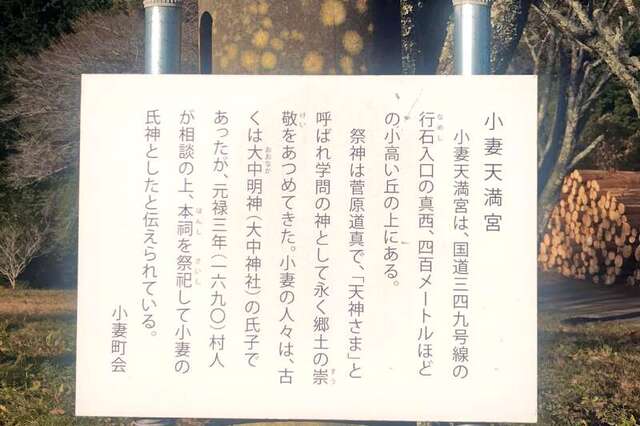 小妻天満宮
小妻天満宮は、国道三四九号線の
行石入口の真西、四百メートルほど
の小高い丘の上にある。
祭神は菅原道真で、「天神さま」と
呼ばれ学問の神として永く郷土の崇
敬をあつめてきた。小妻の人々は、古
くは大中明神（大中神社）の氏子で
あったが、元禄三年（一六九〇）村人
が相談の上、本祠を祭祀して小妻の
氏神としたと伝えられている。
小妻町会